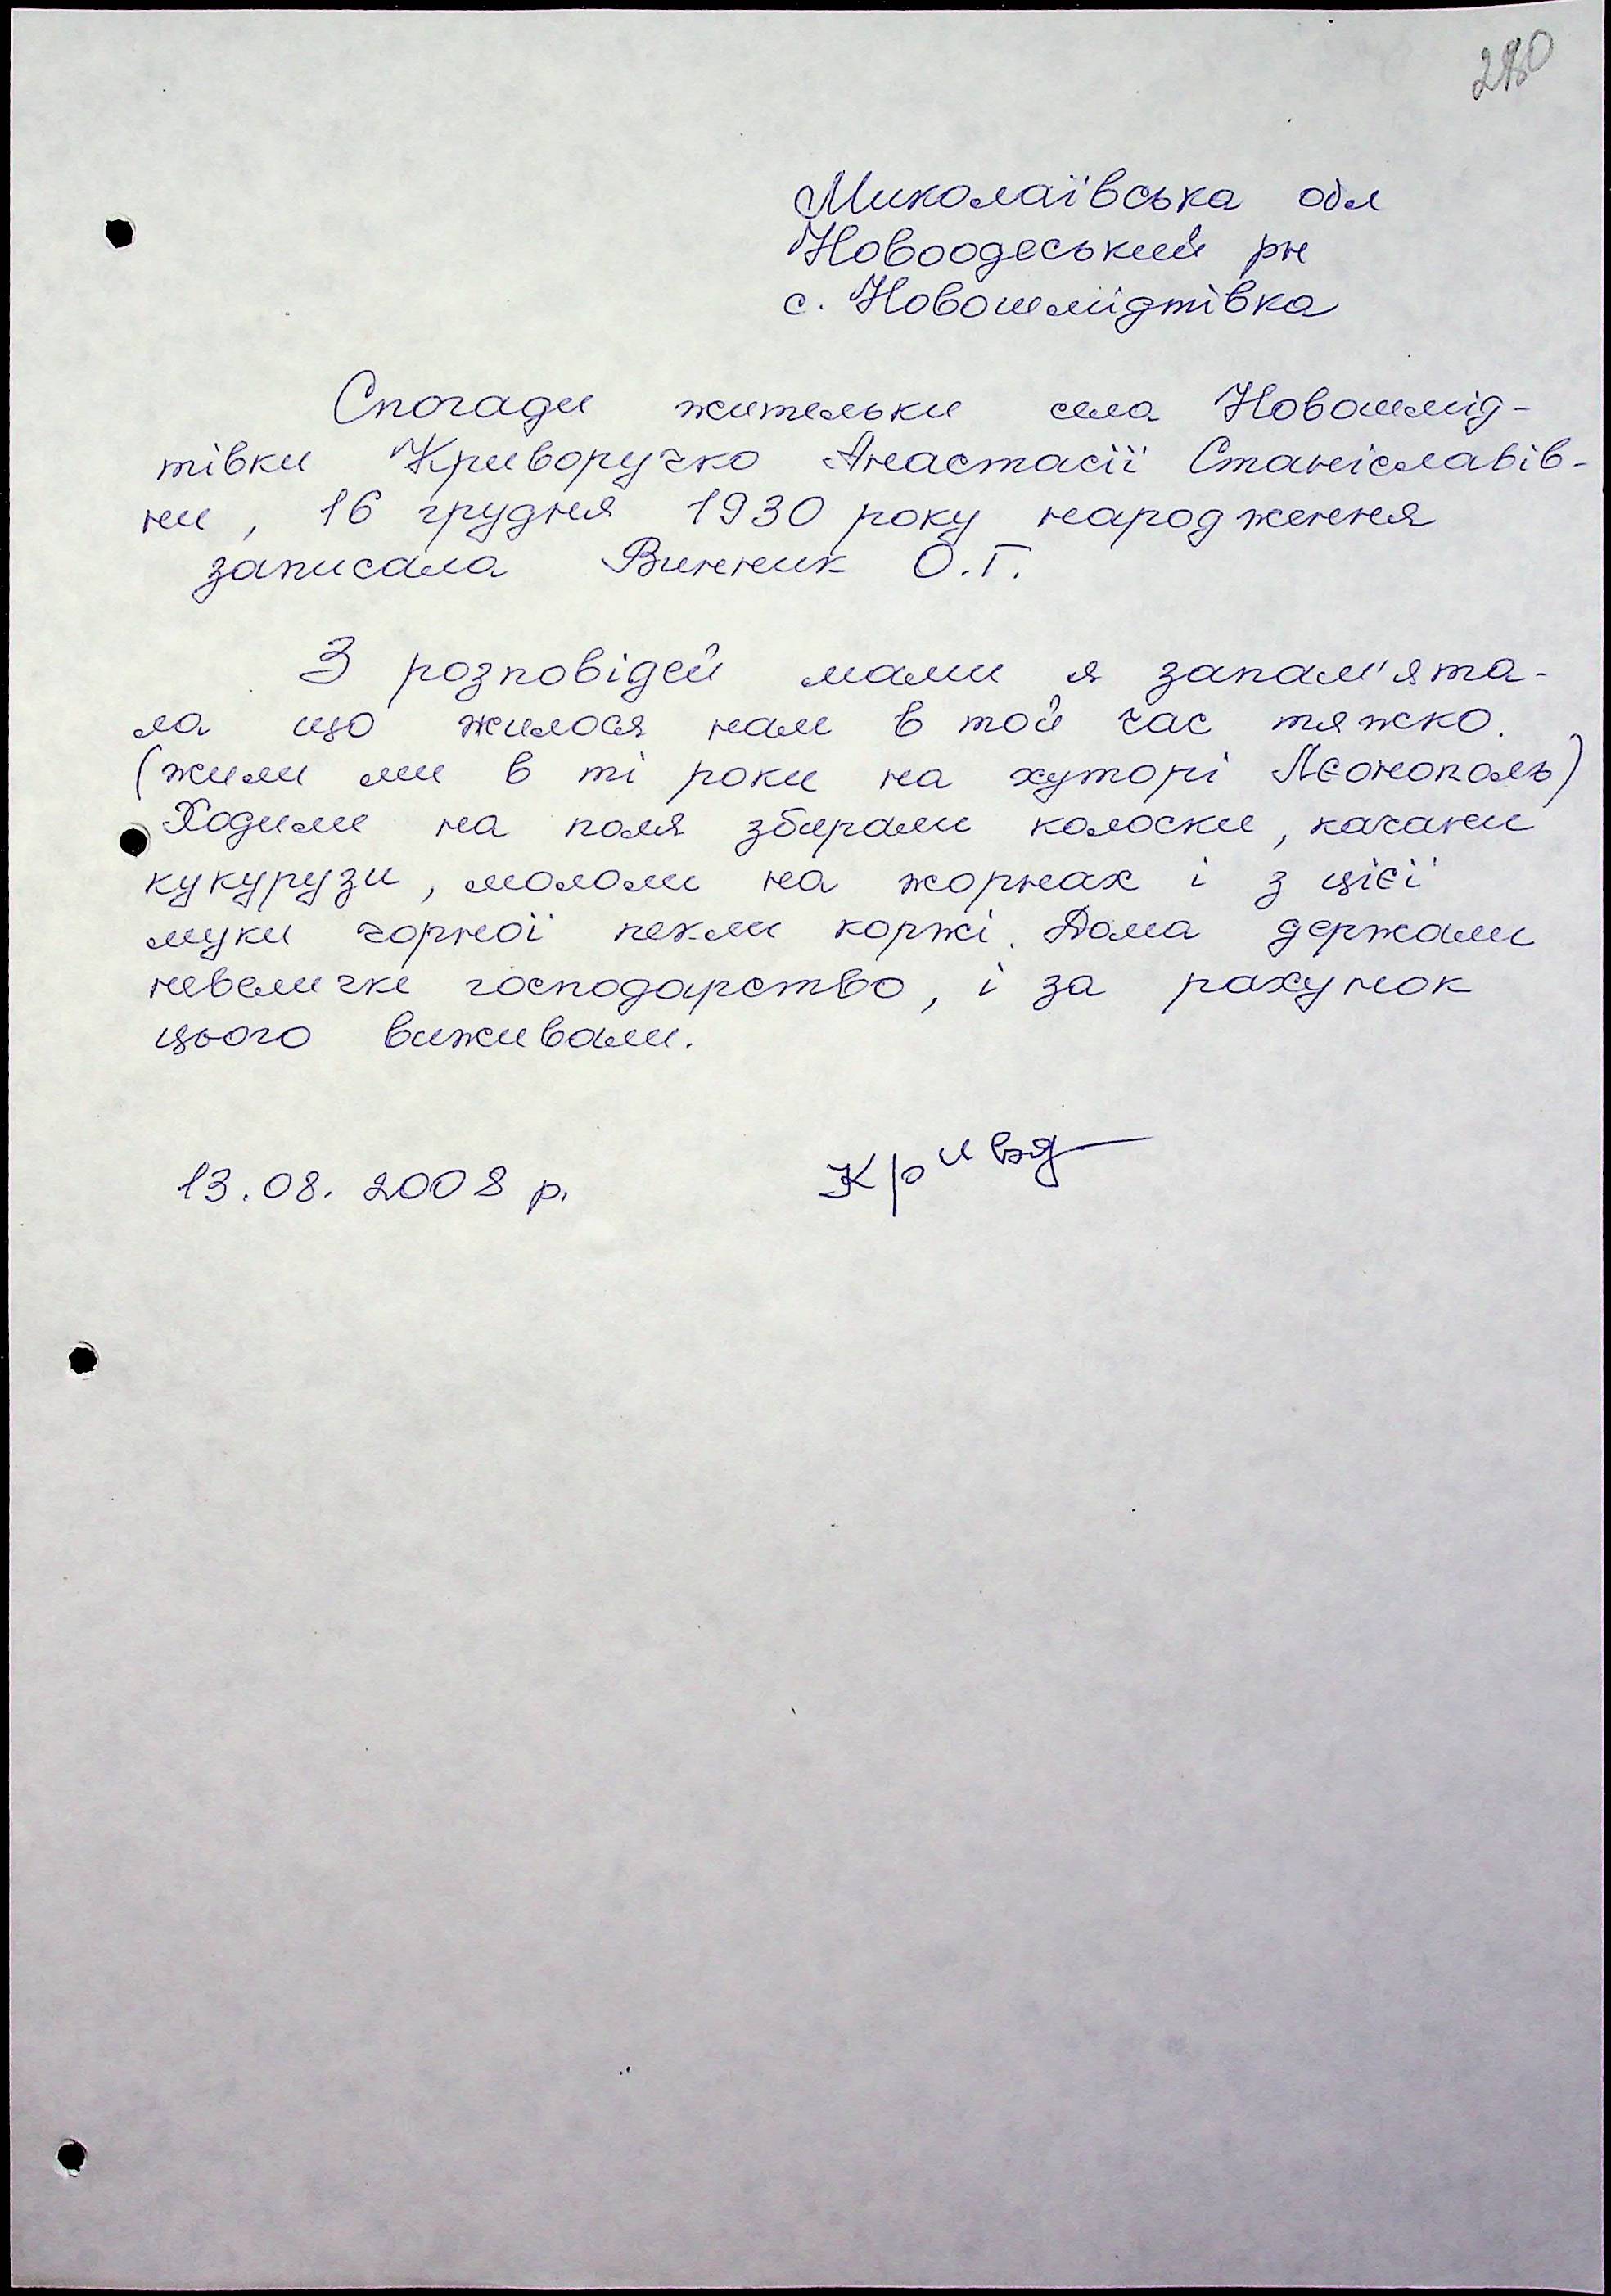 280
Миколаївська обл
Новоодеський рн
с. Новошмідтівка
Спогади жительки села Новошмід-
тівки Криворучко Анастасії Станіславів-
ни, 16 грудня 1930 року народження
записала Винник О.Г.
З розповідей мами я запам'ята-
ла що жилося нам в той час тяжко.
(жили ми в ті роки на хуторі Лєонополь)
Ходили на поля збирали колоски, качани
кукурузи, мололи на жорнах і з цієї
муки чорної пекли коржі. Дома держали
невеличке господарство, і за рахунок
цього виживали.
13.08.2008 р.